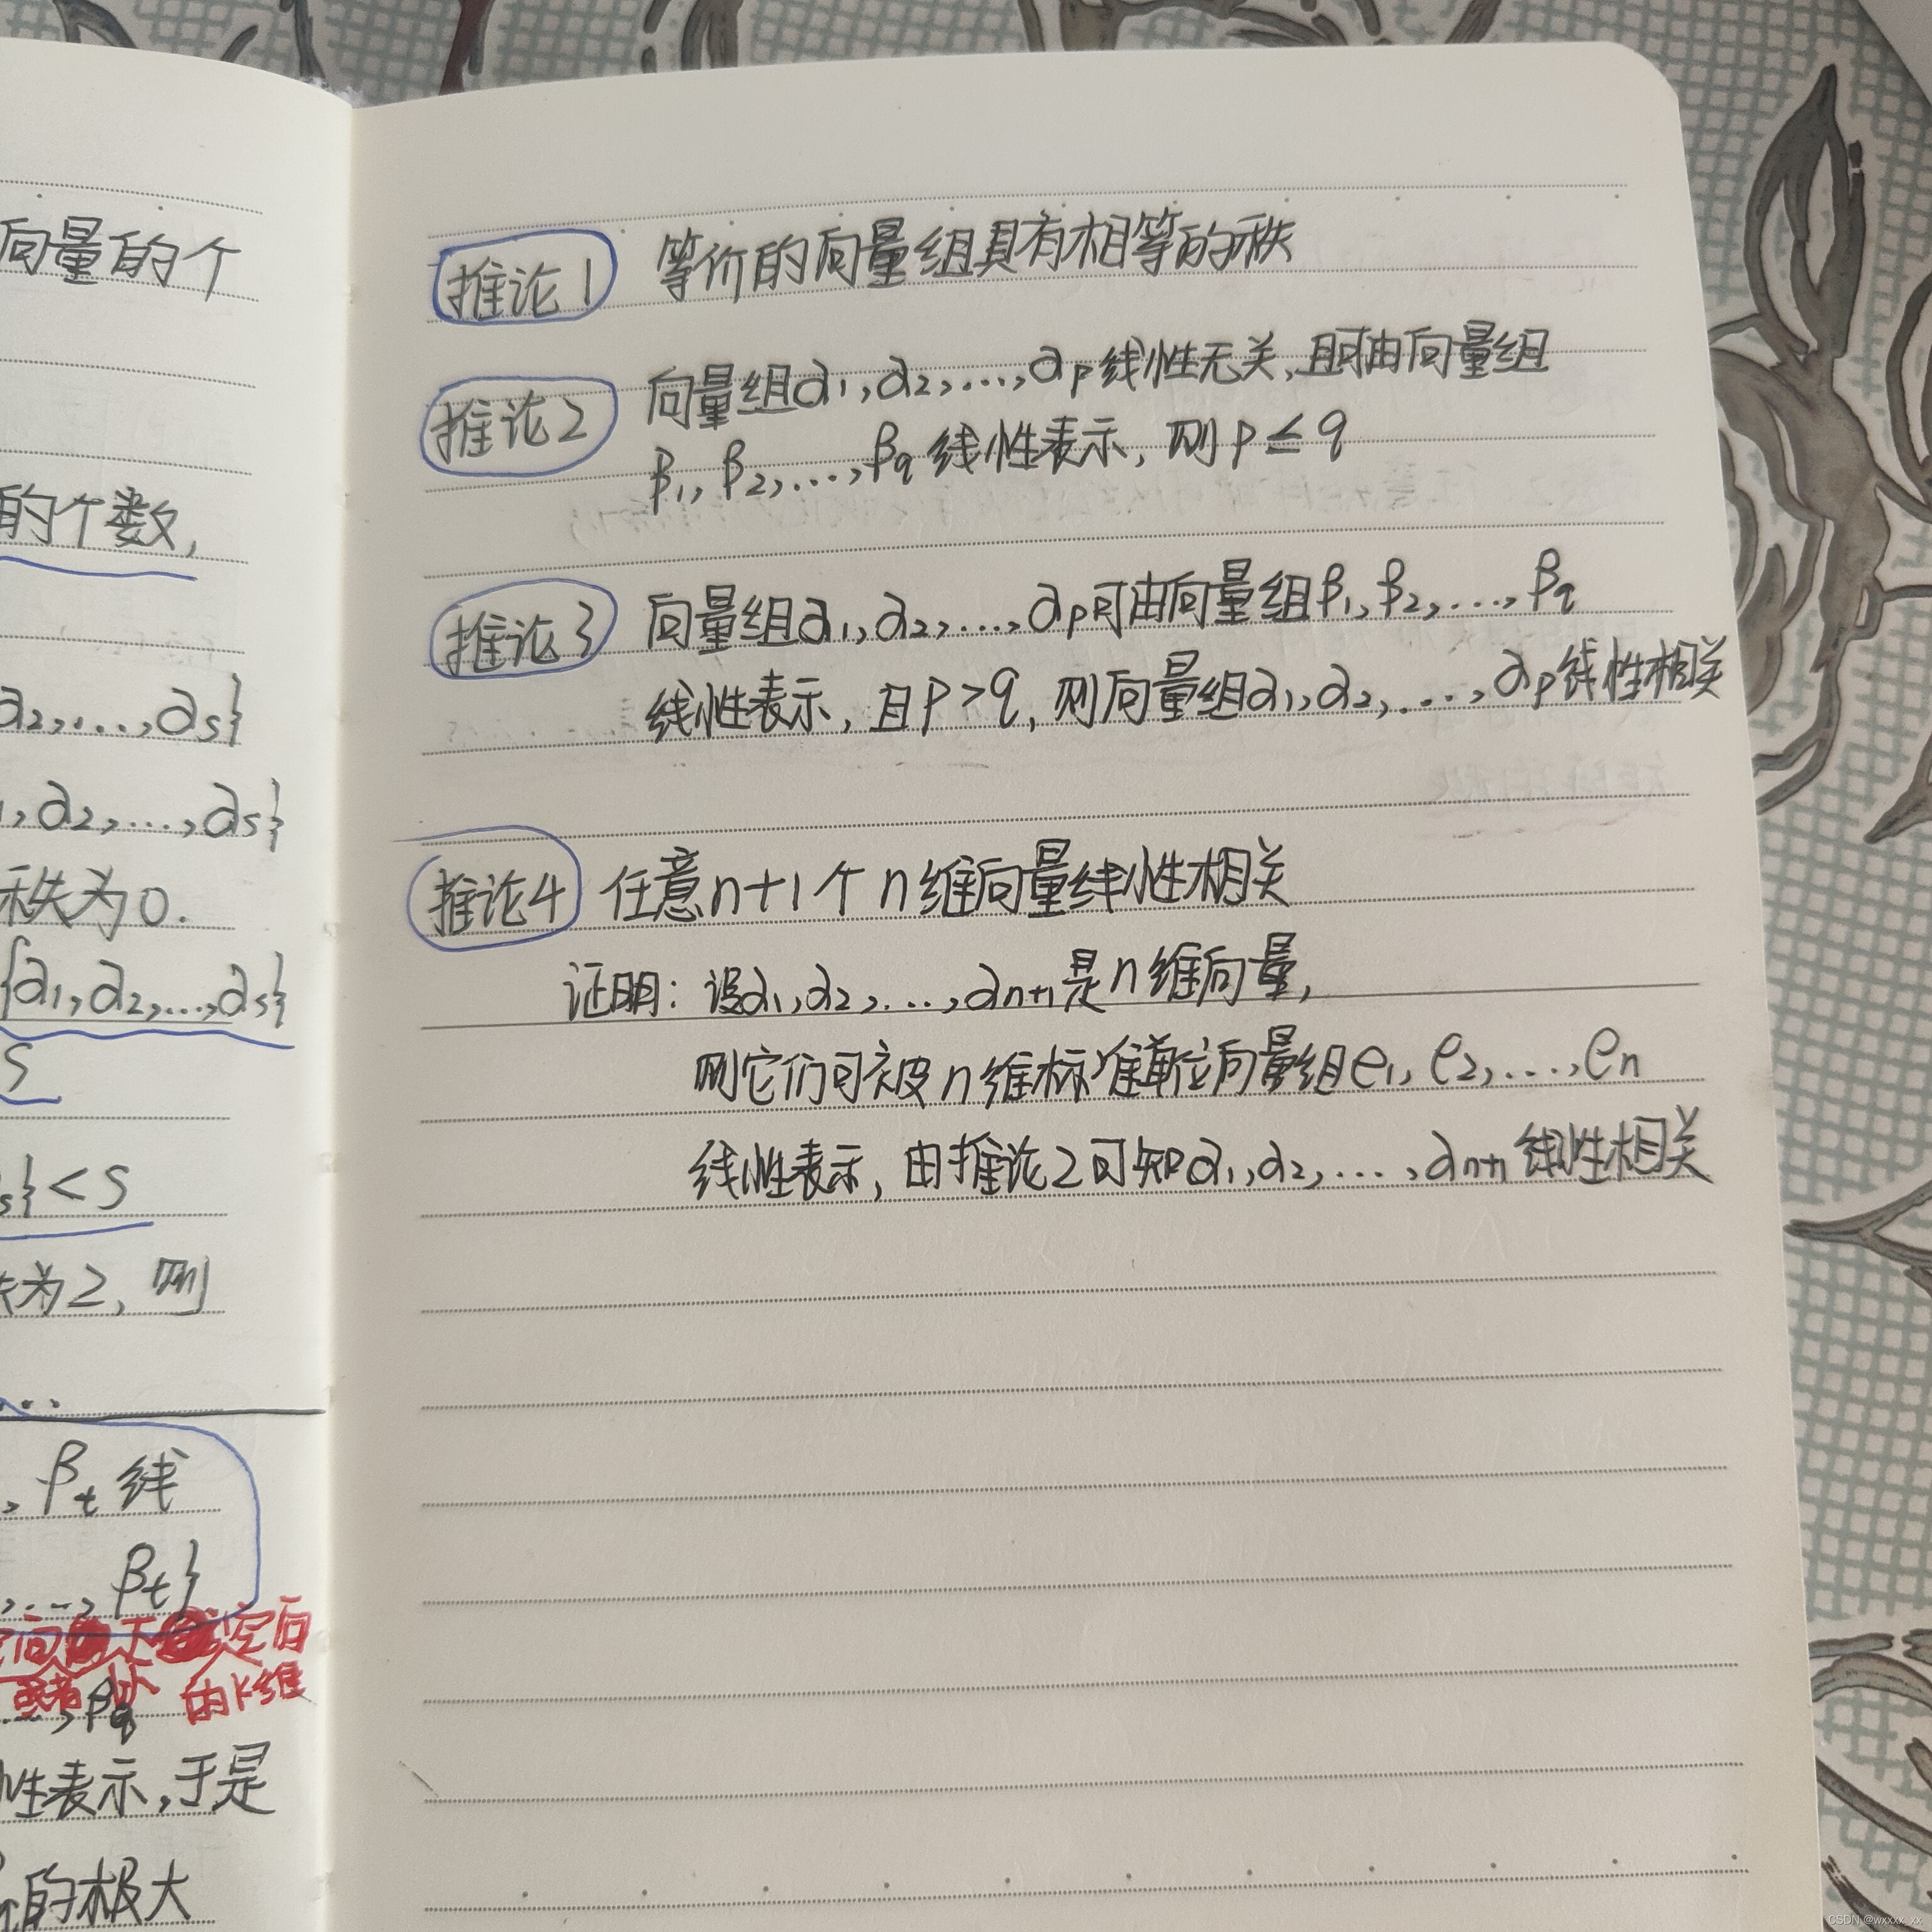 向量的个
的个数,
α2,...,αs}
1,α2,...,αs}
秩为0.
{α1,α2,...,αs}
s
s}<s
为2,则
...
,βt线
,...,βt}
或者
的k维
...,βq
性表示,于是
的极大
推论1 等价的向量组具有相等的秩
推论2 向量组α1,α2,...,αp线性无关,且可由向量组
β1,β2,...,βq线性表示,则p≤q
推论3 向量组α1,α2,...,αp可由向量组β1,β2,...,βq
线性表示,且p>q,则向量组α1,α2,...,αp线性相关
推论4 任意n+1个n维向量线性相关
证明:设α1,α2,...,αn+1是n维向量,
则它们可被n维标准单位向量组e1,e2,...,en
线性表示,由推论2可知α1,α2,...,αn+1线性相关
CSDN @wxxxx_xx